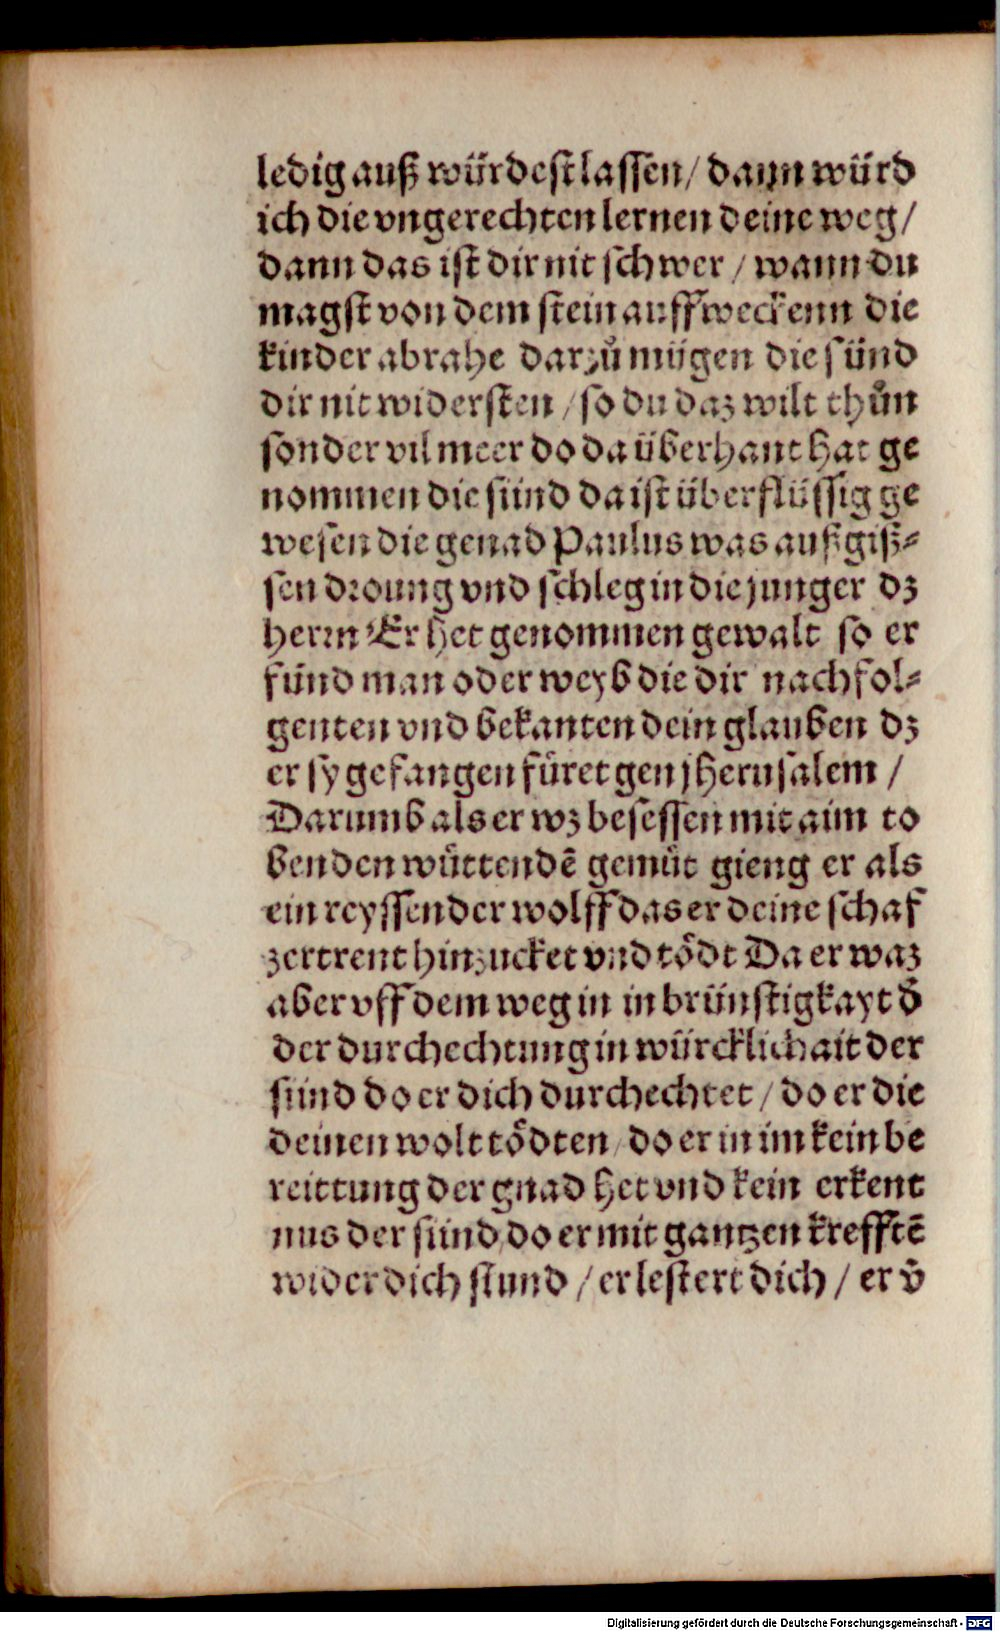 ledig auß würdest lassen/ dann würd
ich die vngerechten lernen deine weg/
dann das ist dir nit schwer / wann du
magst von dem stein auffweckenn die
kinder abrahe darzů mügen die sünd
dir nit widersten / so du daz wilt thůn
sonder vil meer do da überhant hat ge
nommen die sünd da ist überflüssig ge
wesen die genad Paulus was außgiß⸗
sen droung vnd schleg in die junger dz
herrn Er het genommen gewalt so er
fünd man oder weyb die dir nachfol⸗
genten vnd bekanten dein glauben dz
er sy gefangen füret gen jherusalem /
Darumb als er wz besessen mit aim to
benden wüttendē gemüt gieng er als
ein reyssender wolff das er deine schaf
zertrent hinzucket vnd tödt Da er waz
aber vff dem weg in inbrünstigkayt d̄
der durchechtung in würcklichait der
sünd do er dich durchechtet / do er die
deinen wolt tödten / do er in im kein be
reittung der gnad het vnd kein erkent
nus der sünd / do er mit gantzen krefftē
wider dich stund / er lestert dich / er v̄
Digitalisierung gefördert durch die Deutsche Forschungsgemeinschaft - DFG